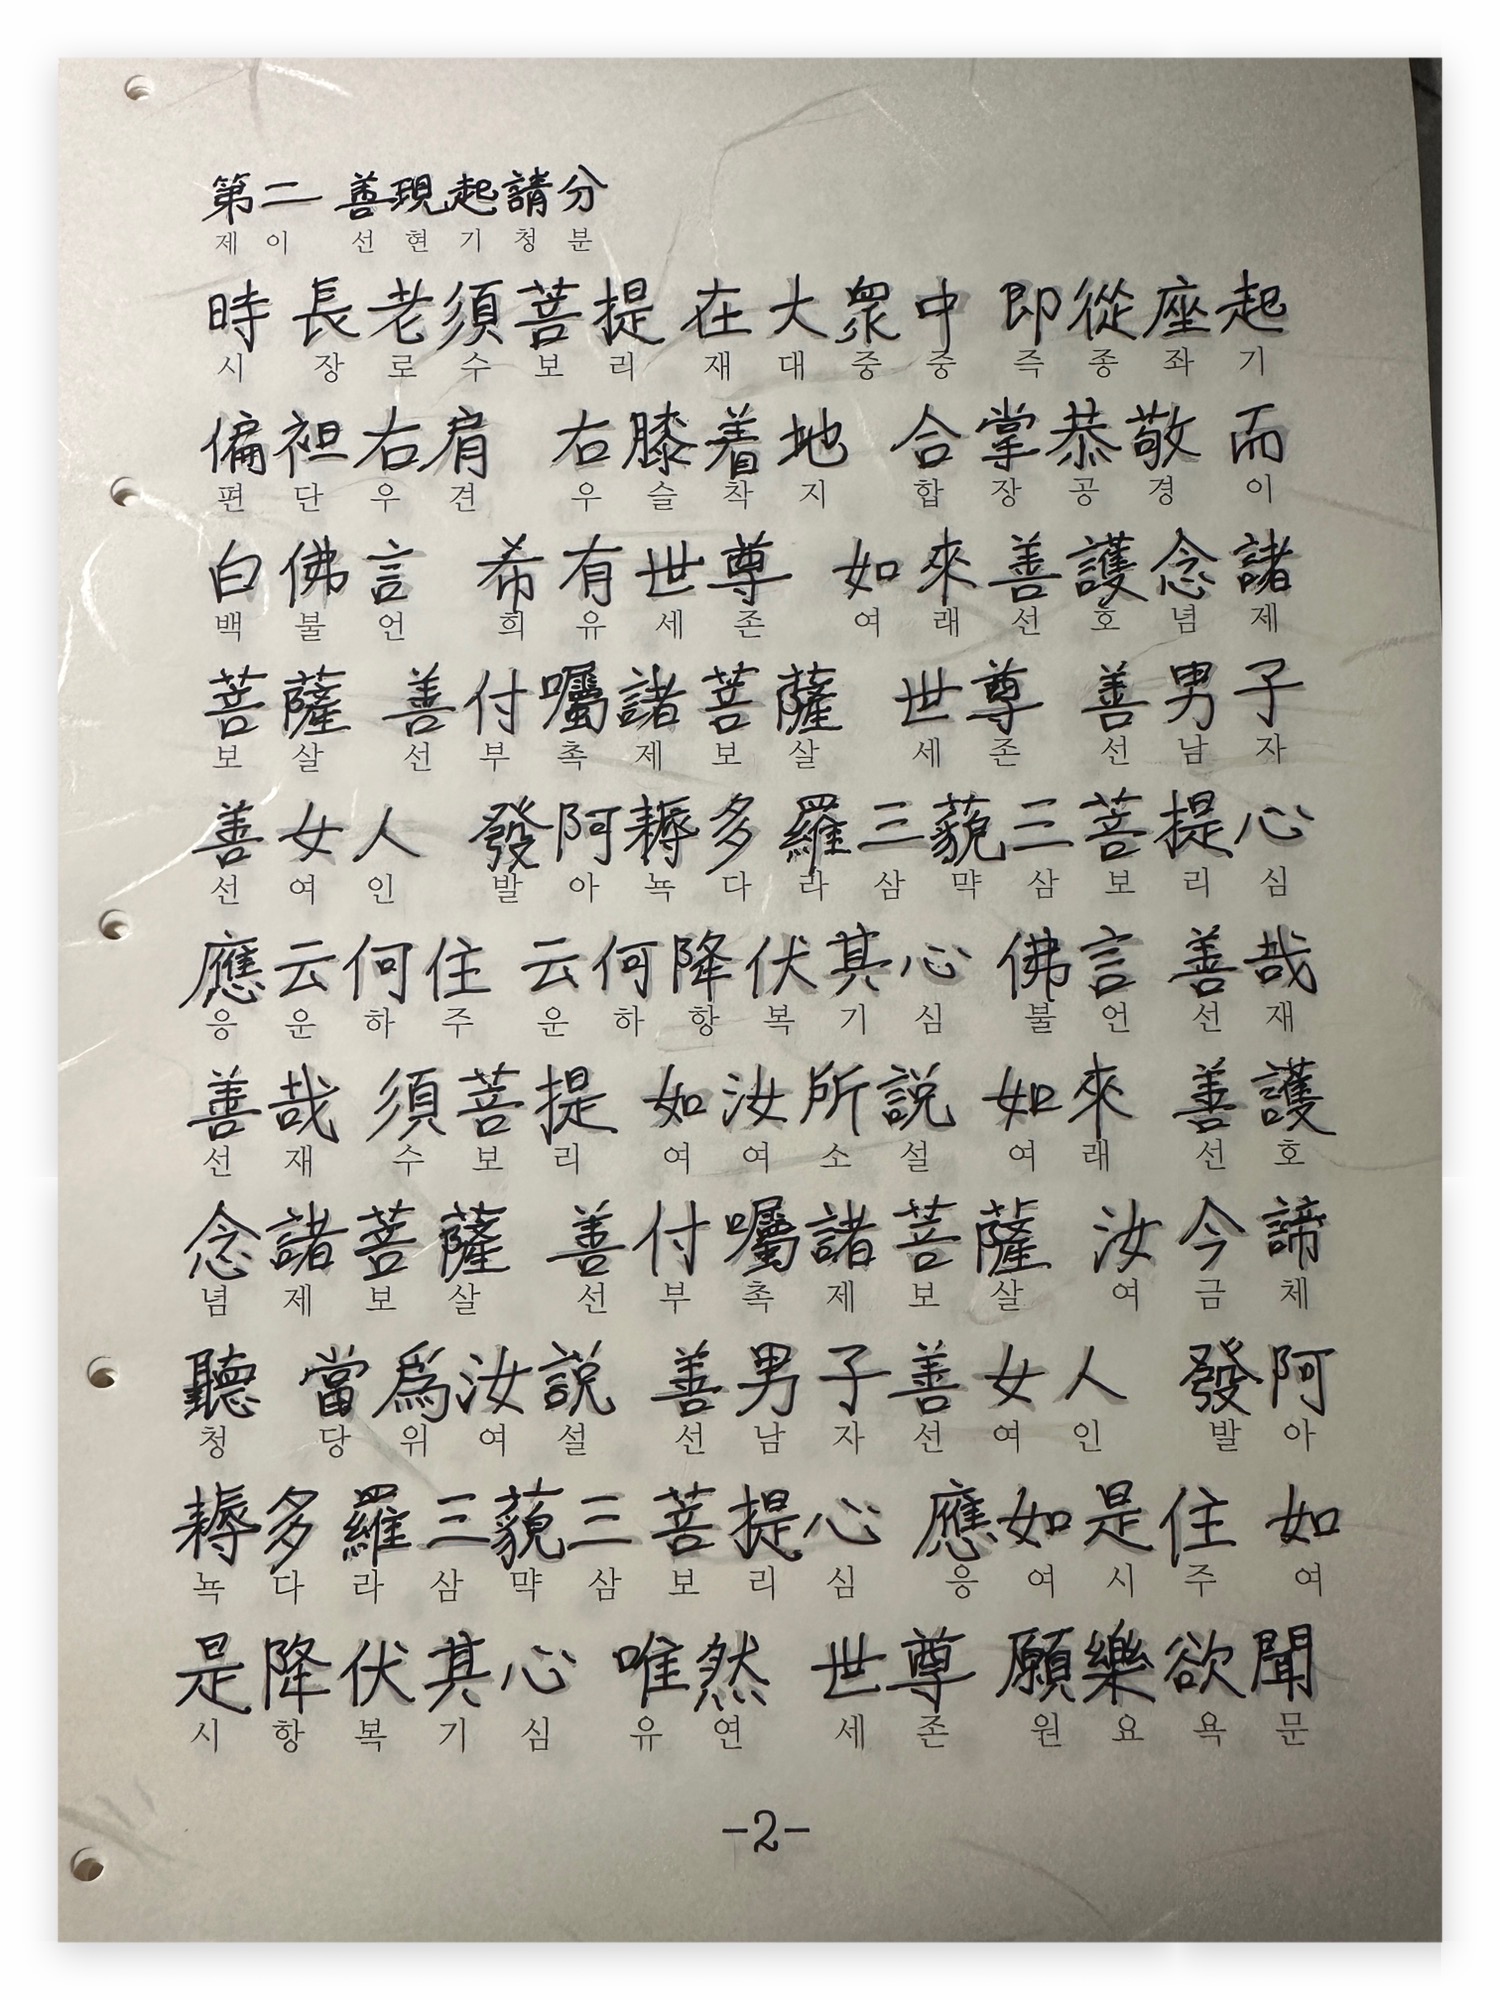 第二 善現起請分
제이 선현기청분
時 長老須菩提 在大衆中 即從座起
시 장로수보리 재대중중 즉종좌기
偏袒右肩 右膝着地 合掌恭敬 而
편단우견 우슬착지 합장공경 이
白佛言 希有世尊 如來善護念諸
백불언 희유세존 여래선호념제
菩薩 善付囑諸菩薩 世尊 善男子
보살 선부촉제보살 세존 선남자
善女人 發阿耨多羅三藐三菩提心
선여인 발아뇩다라삼먁삼보리심
應云何住 云何降伏其心 佛言 善哉
응운하주 운하항복기심 불언 선재
善哉 須菩提 如汝所説 如來 善護
선재 수보리 여여소설 여래 선호
念諸菩薩 善付囑諸菩薩 汝今諦
념제보살 선부촉제보살 여금체
聽 當爲汝説 善男子善女人 發阿
청 당위여설 선남자선여인 발아
耨多羅三藐三菩提心 應如是住 如
뇩다라삼먁삼보리심 응여시주 여
是降伏其心 唯然 世尊 願樂欲聞
시항복기심 유연 세존 원요욕문
-2-